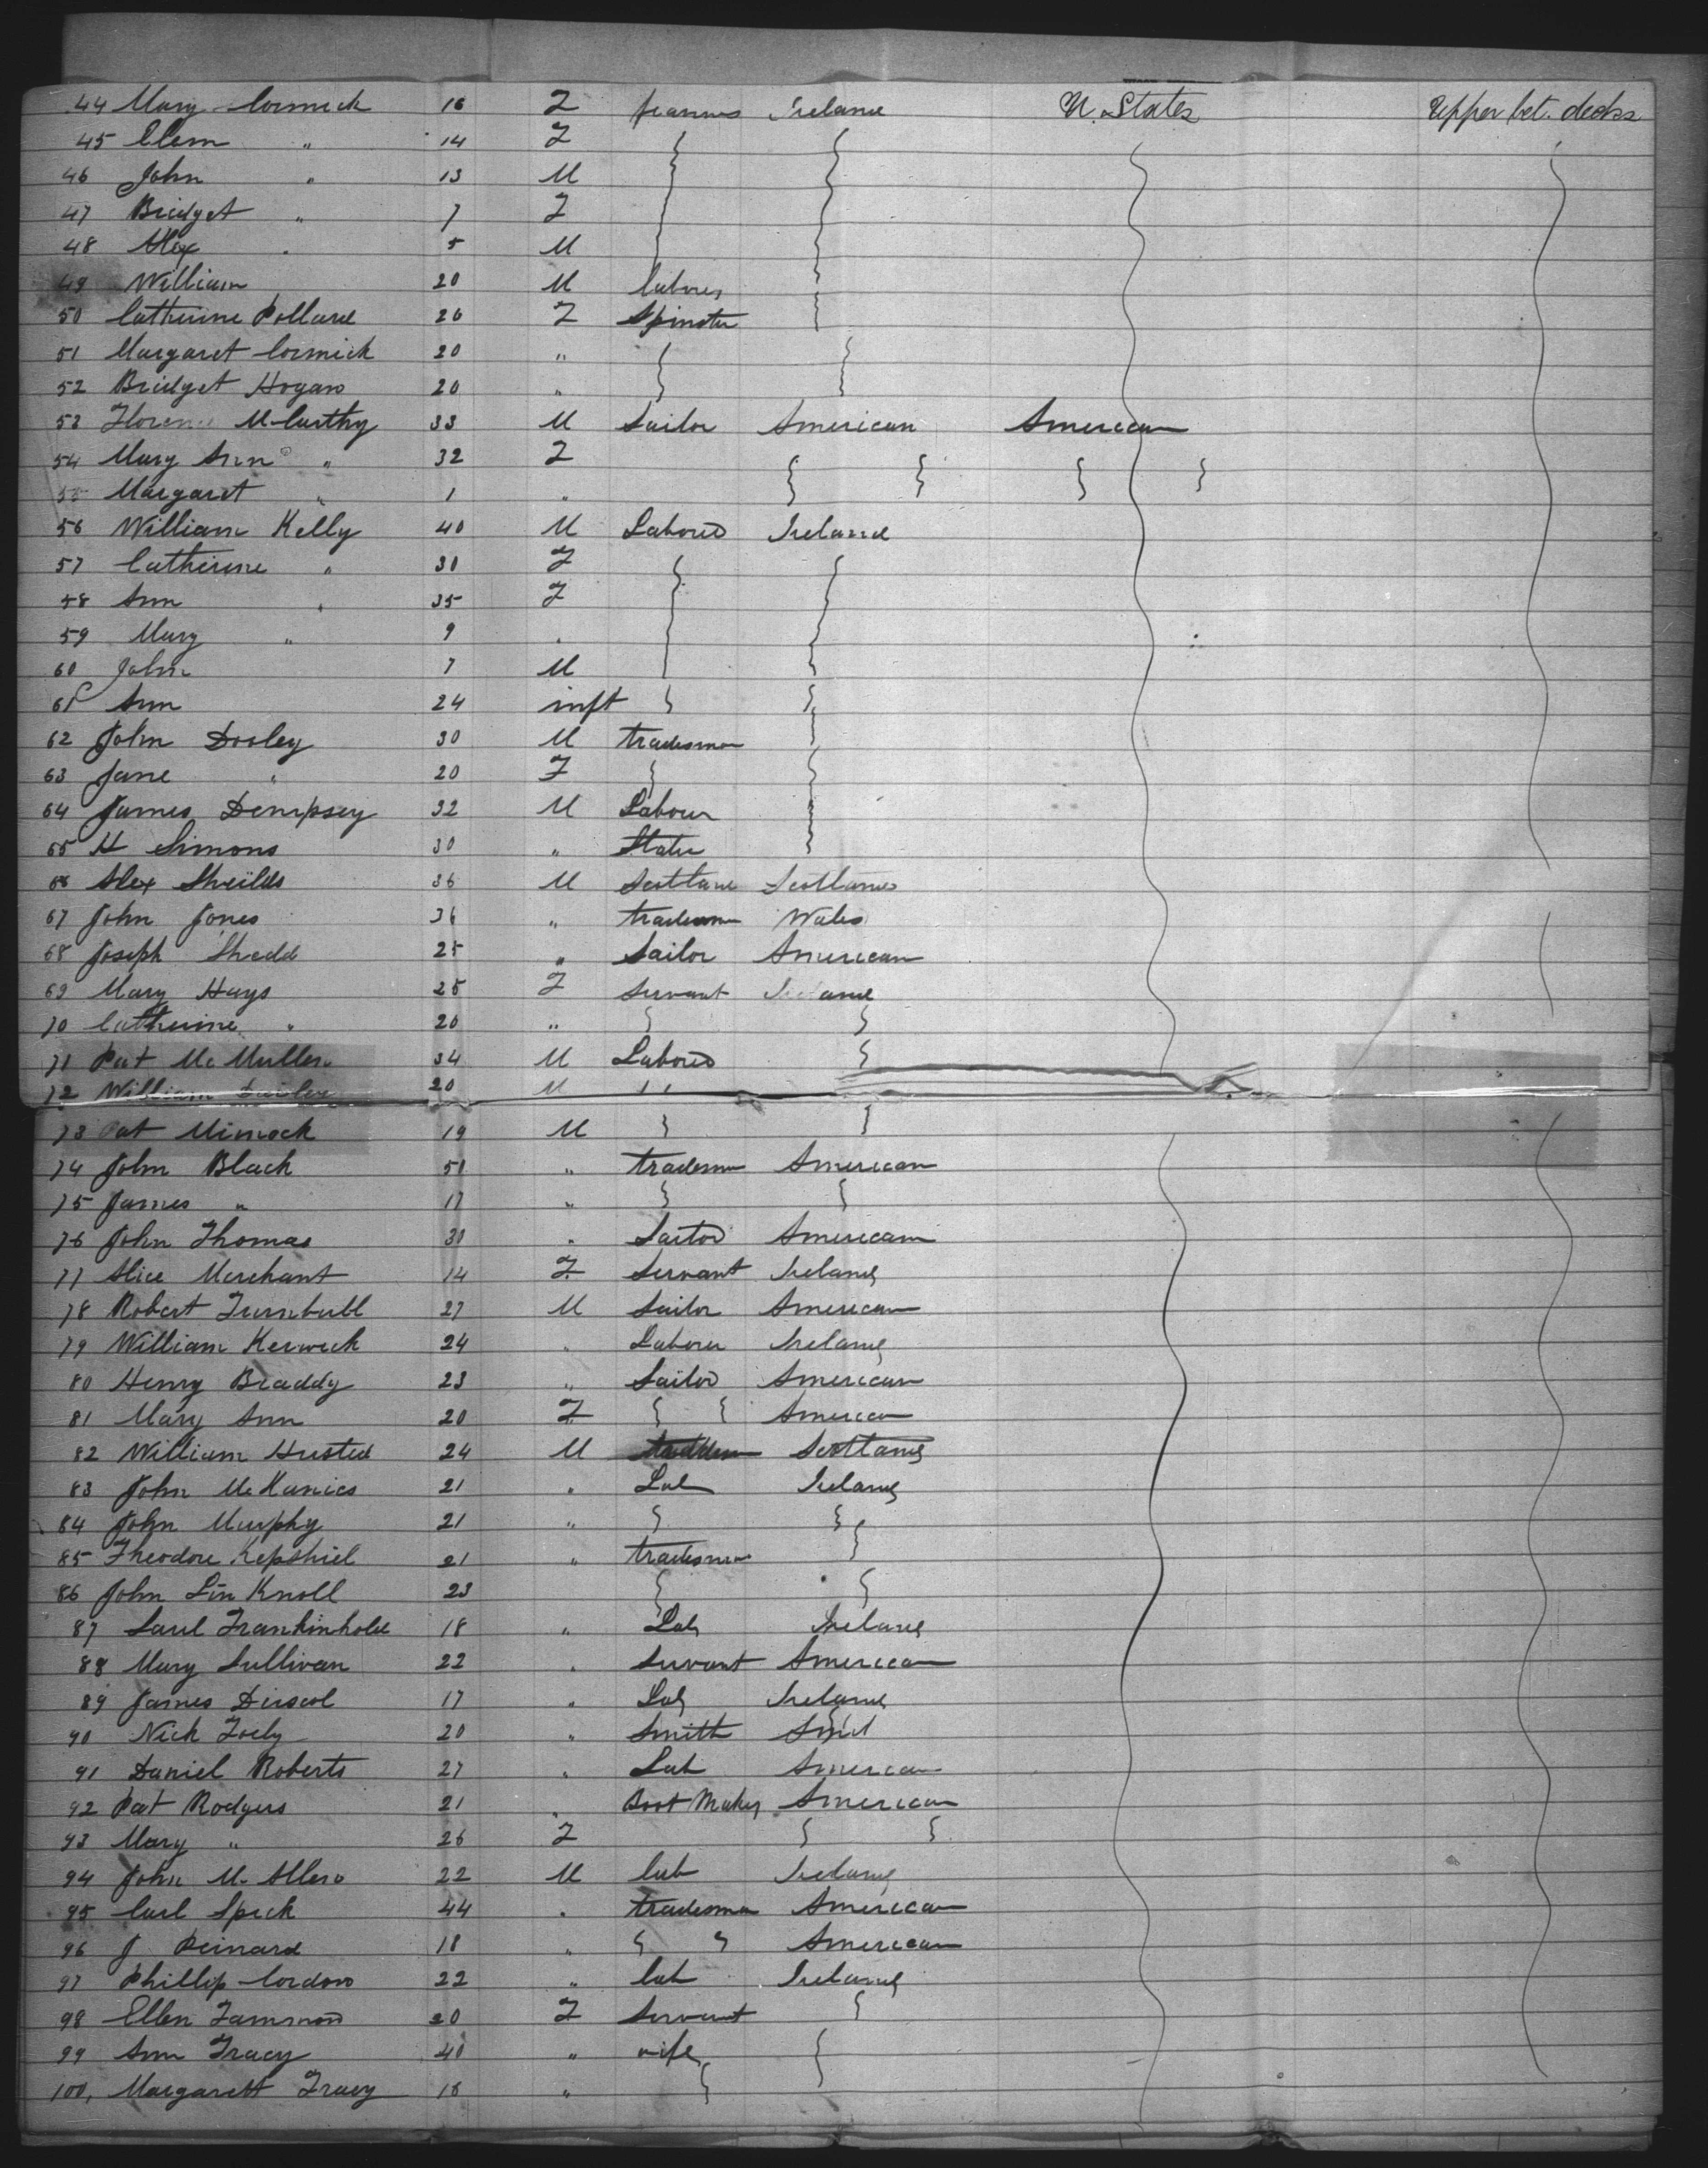 44 Mary Cormick 16 F Ireland U. States Upper bet. decks
45 Elem " 14 F
46 John " 13 M
47 Bridget " 7 F
48 Alex " 5 M
49 William 20 M labour
50 Catherine Pollard 26 F Spinster
51 Margaret Cormick 20 "
52 Bridget Hogan 20 "
53 Floren McCarthy 33 M Sailor American American
54 Mary Ann " 32 F
55 Margaret " 1 "
56 William Kelly 40 M Labour Ireland
57 Catherine " 30 F
58 Ann " 35 F
59 Mary " 9 "
60 John 7 M
61 Ann 24 inft
62 John Dooley 30 M tradesman
63 Jane " 20 F
64 James Dempsey 32 M Labour
65 H Simons 30 " Slater
66 Alex Sheilds 36 M Scotland Scotland
67 John Jones 36 " tradesman Wales
68 Joseph Shedd 25 " Sailor American
69 Mary Hays 25 F Servant Ireland
70 Catherine " 20 "
71 Pat McMullen 34 M Labour
72 William 20 M "
73 Pat Mimock 19 M
74 John Black 51 " tradesman American
75 James " 17 "
76 John Thomas 30 " Sailor American
77 Alice Merchant 14 F Servant Ireland
78 Robert Turnbull 27 M Sailor American
79 William Kerwick 24 " Laborer Ireland
80 Henry Braddy 23 " Sailor American
81 Mary Ann 20 F American
82 William Husted 24 M Scotland
83 John McKunies 21 " Lab Ireland
84 John Murphy 21 "
85 Theodore Kepshiel 21 " tradesman
86 John Lin Knoll 23
87 Frankinhold 18 " Lab Ireland
88 Mary Sullivan 22 " Servant American
89 James Dirscol 17 " Lab Ireland
90 Nick 20 " Smith
91 Daniel Roberts 27 " Lab American
92 Pat Rodgers 21 " Boot Maker American
93 Mary " 26 F
94 John M. Allen 22 M lab Ireland
95 Carl Speck 44 " tradesman American
96 J Beinard 18 " American
97 Phillip Cordon 22 " lab Ireland
98 Ellen 20 F Servant
99 Ann Tracy 40 " wife
100, Margarett Tracy 18 "